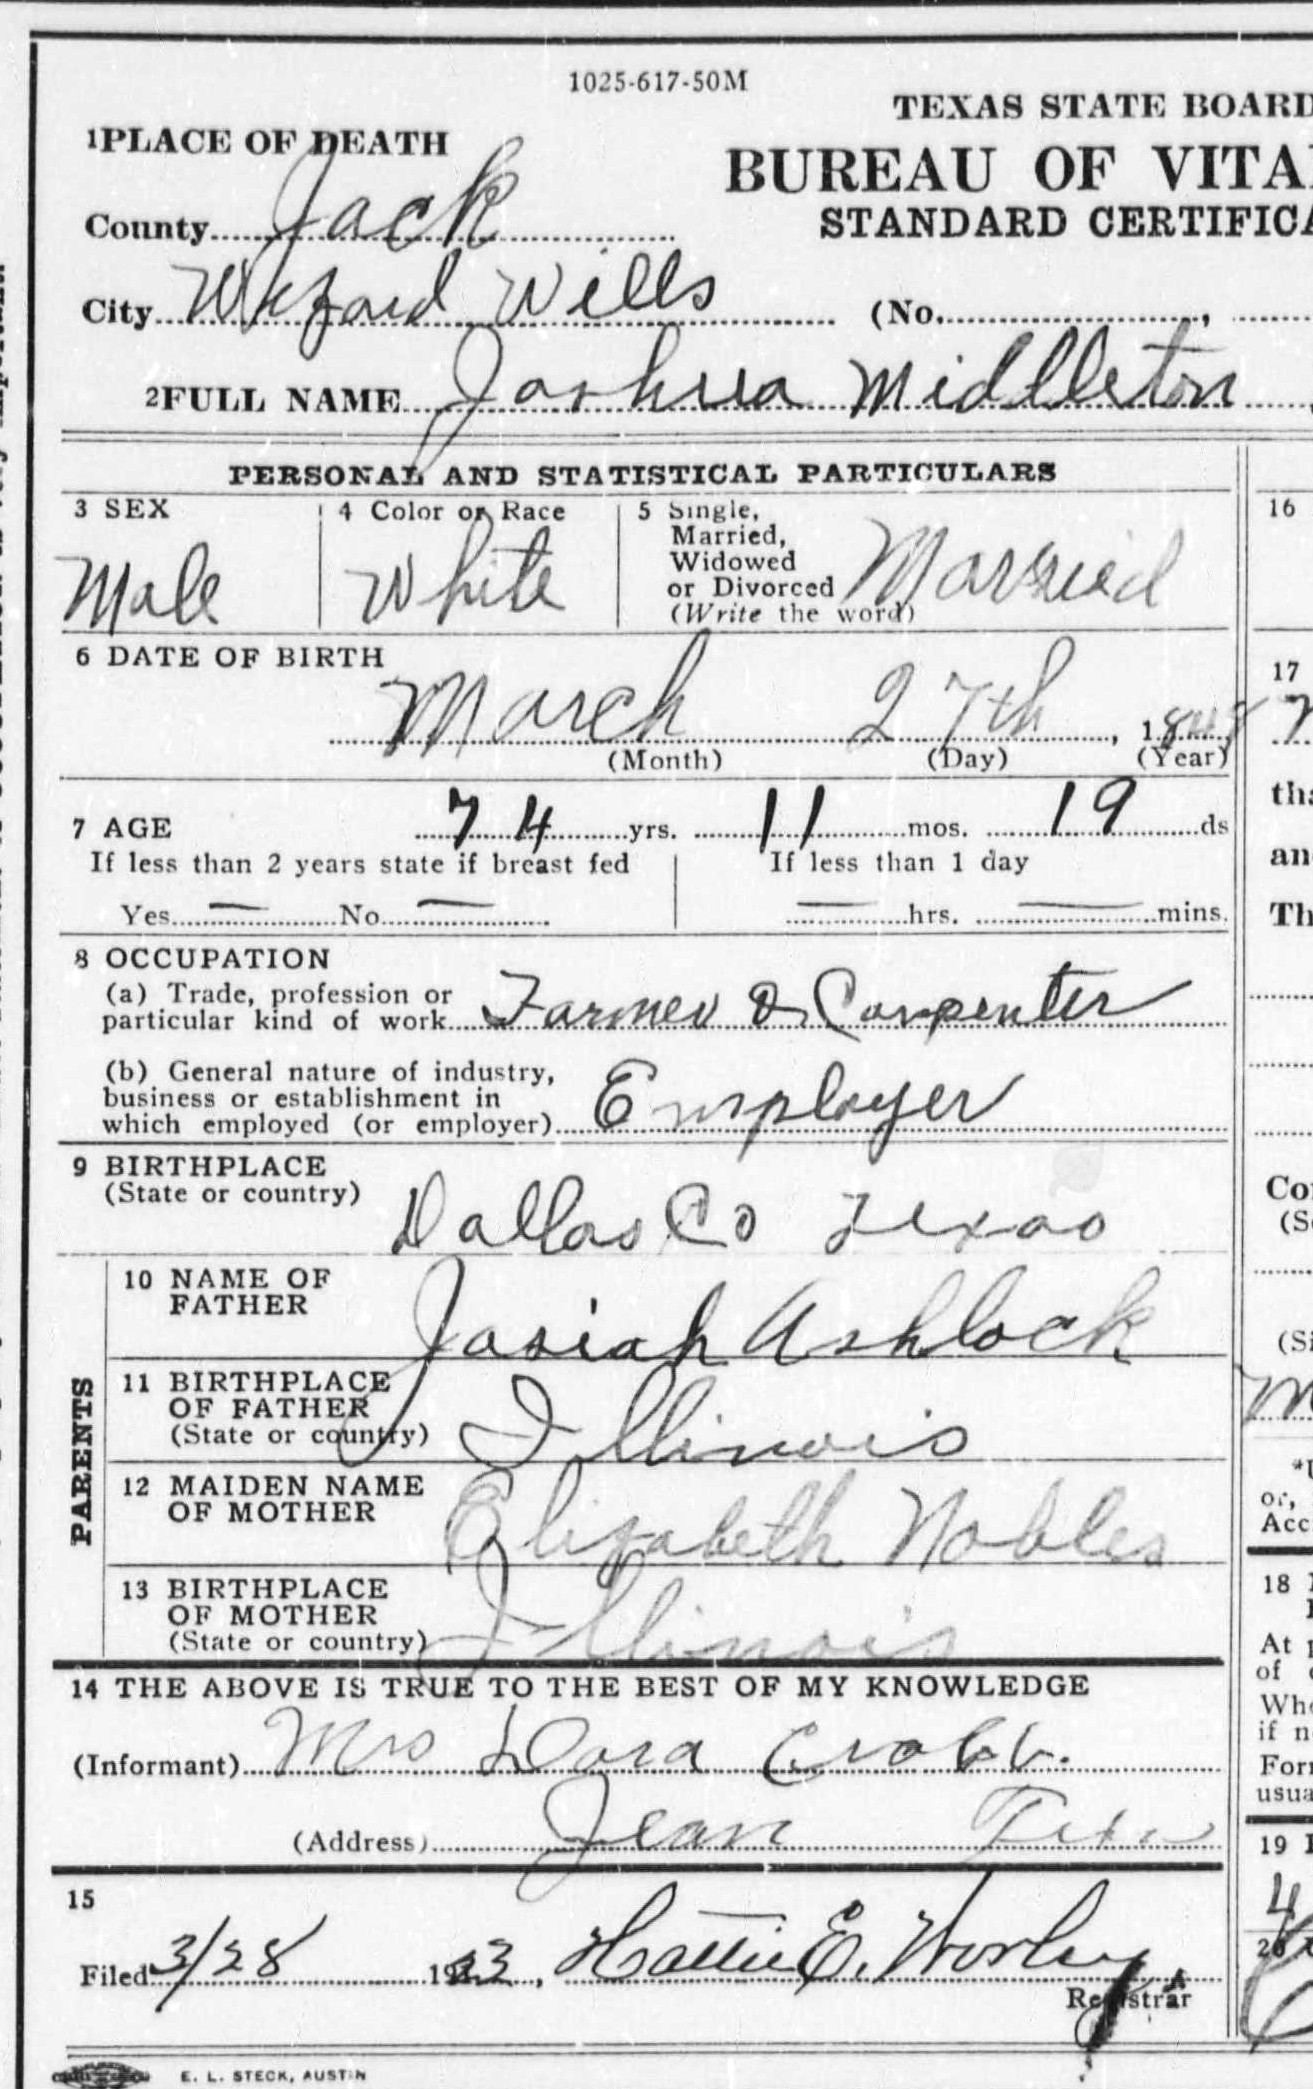 1025-617-50M
TEXAS STATE BOARD
1PLACE OF DEATH
BUREAU OF VITA
STANDARD CERTIFICA
County Jack
City Wizard Wills (No. ,
2FULL NAME Joshua Middleton
PERSONAL AND STATISTICAL PARTICULARS
3 SEX Male
4 Color or Race White
5 Single,
Married,
Widowed
or Divorced
(Write the word) Married
16
6 DATE OF BIRTH
March 27th, 1848
(Month) (Day) (Year)
17
7 AGE 74 yrs. 11 mos. 19 ds
tha
If less than 2 years state if breast fed
If less than 1 day
and
Yes — No —
— hrs. — mins.
Th
8 OCCUPATION
(a) Trade, profession or
particular kind of work Farmer & Carpenter
(b) General nature of industry,
business or establishment in
which employed (or employer) Employer
9 BIRTHPLACE
(State or country) Dallas Co Texas
Co
(S
PARENTS
10 NAME OF
FATHER Josiah Ashlock
(Si
11 BIRTHPLACE
OF FATHER
(State or country) Illinois
12 MAIDEN NAME
OF MOTHER Elizabeth Nobles
or,
Acc
13 BIRTHPLACE
OF MOTHER
(State or country) Illinois
18
At
of
Who
if n
For
usua
14 THE ABOVE IS TRUE TO THE BEST OF MY KNOWLEDGE
(Informant) Mrs Dora Crabb.
(Address) Jean Tex
19
15
Filed 3/28 1923, Hattie E. Worley
Registrar
4
20
E. L. STECK, AUSTIN